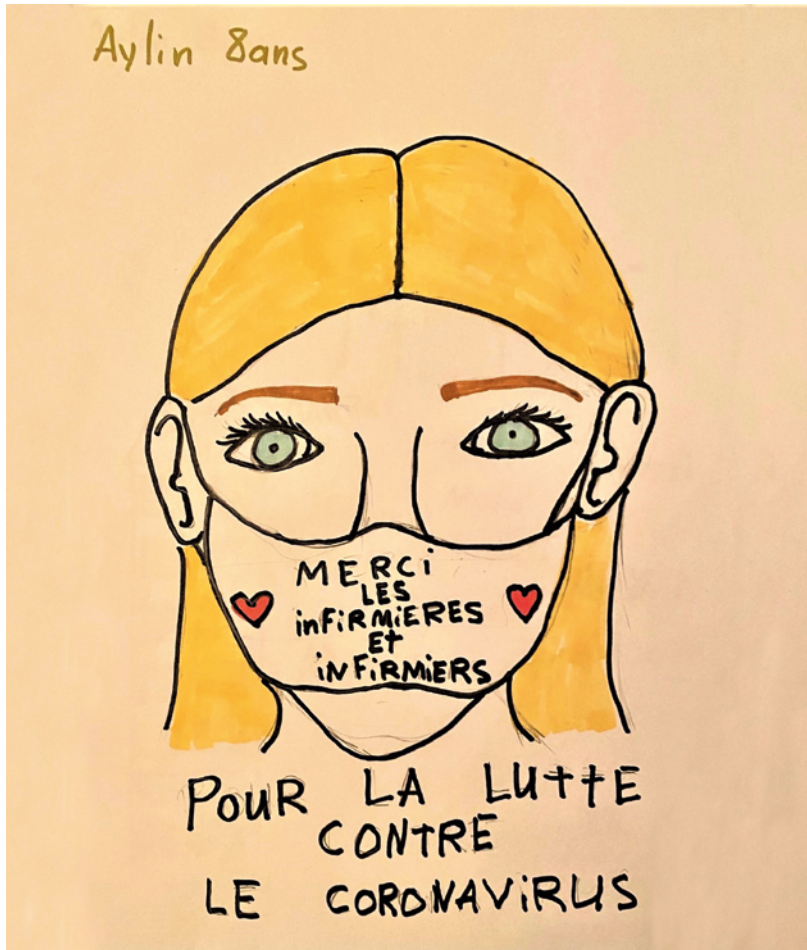 Aylin 8ans
MERCi
LES
inFiRMiERES
Et
iNFiRMiERS
PouR LA LUttE
CONtRE
LE CORONAViRUS